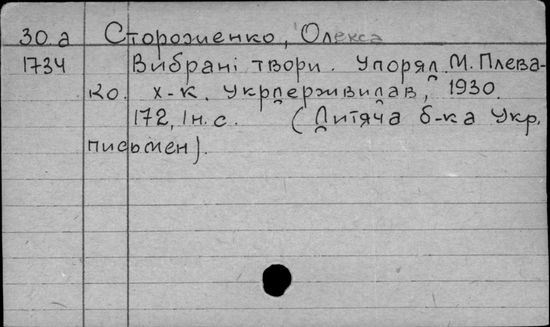 30.а Стороженко, Олекса
1734 Вибрані твори. Упоряд. М. Плева-
ко. Х-к. Укрдержвидав, 1930.
172, 1 н. с. (Дитяча б-ка Укр.
письмен).